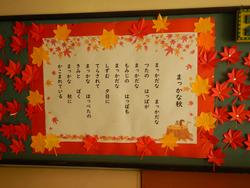 まっかな秋
まっかだな　まっかだな
つたの　はっぱが
まっかだな
もみじの　はっぱも
まっかだな
しずむ　夕日に
てらされて
まっかな　ほっぺたの
きみと　ぼく
まっかな　秋に
かこまれている